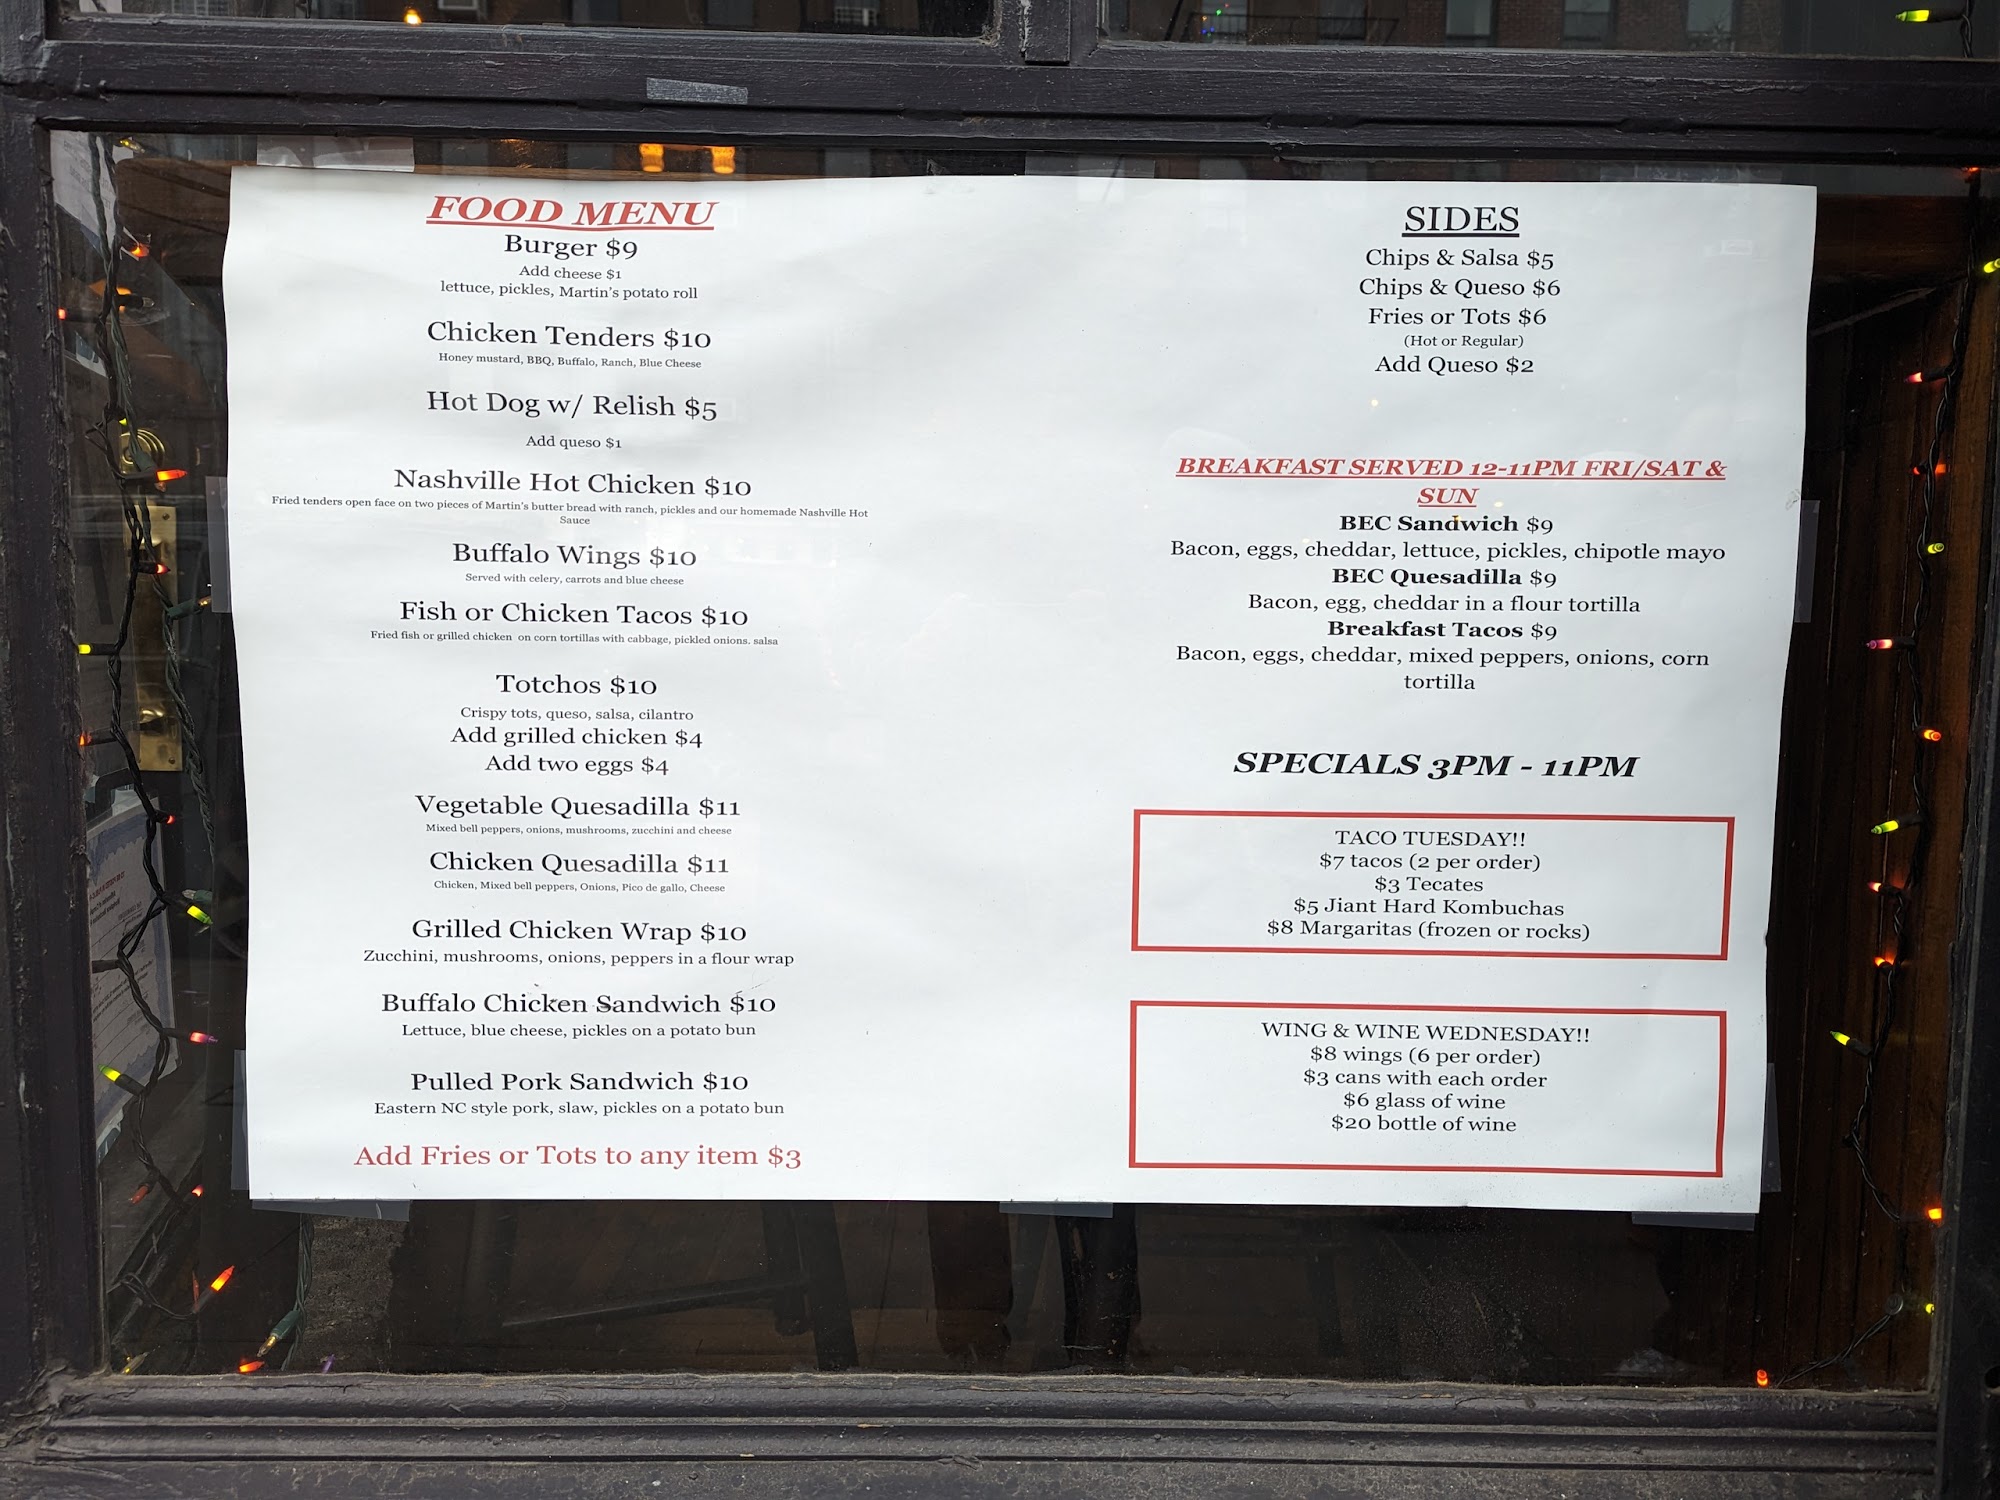 FOOD MENU
Burger $9
Add cheese $1
lettuce, pickles, Martin's potato roll
Chicken Tenders $10
Honey mustard, BBQ, Buffalo, Ranch, Blue Cheese
Hot Dog w/ Relish $5
Add queso $1
Nashville Hot Chicken $10
Fried tenders open face on two pieces of Martin's butter bread with ranch, pickles and our homemade Nashville Hot
Sauce
Buffalo Wings $10
Served with celery, carrots and blue cheese
Fish or Chicken Tacos $10
Fried fish or grilled chicken on corn tortillas with cabbage, pickled onions. salsa
Totchos $10
Crispy tots, queso, salsa, cilantro
Add grilled chicken $4
Add two eggs $4
Vegetable Quesadilla $11
Mixed bell peppers, onions, mushrooms, zucchini and cheese
Chicken Quesadilla $11
Chicken, Mixed bell peppers, Onions, Pico de gallo, Cheese
Grilled Chicken Wrap $10
Zucchini, mushrooms, onions, peppers in a flour wrap
Buffalo Chicken Sandwich $10
Lettuce, blue cheese, pickles on a potato bun
Pulled Pork Sandwich $10
Eastern NC style pork, slaw, pickles on a potato bun
Add Fries or Tots to any item $3
SIDES
Chips & Salsa $5
Chips & Queso $6
Fries or Tots $6
(Hot or Regular)
Add Queso $2
BREAKFAST SERVED 12-11PM FRI/SAT &
SUN
BEC Sandwich $9
Bacon, eggs, cheddar, lettuce, pickles, chipotle mayo
BEC Quesadilla $9
Bacon, egg, cheddar in a flour tortilla
Breakfast Tacos $9
Bacon, eggs, cheddar, mixed peppers, onions, corn
tortilla
SPECIALS 3PM - 11PM
TACO TUESDAY!!
$7 tacos (2 per order)
$3 Tecates
$5 Jiant Hard Kombuchas
$8 Margaritas (frozen or rocks)
WING & WINE WEDNESDAY!!
$8 wings (6 per order)
$3 cans with each order
$6 glass of wine
$20 bottle of wine